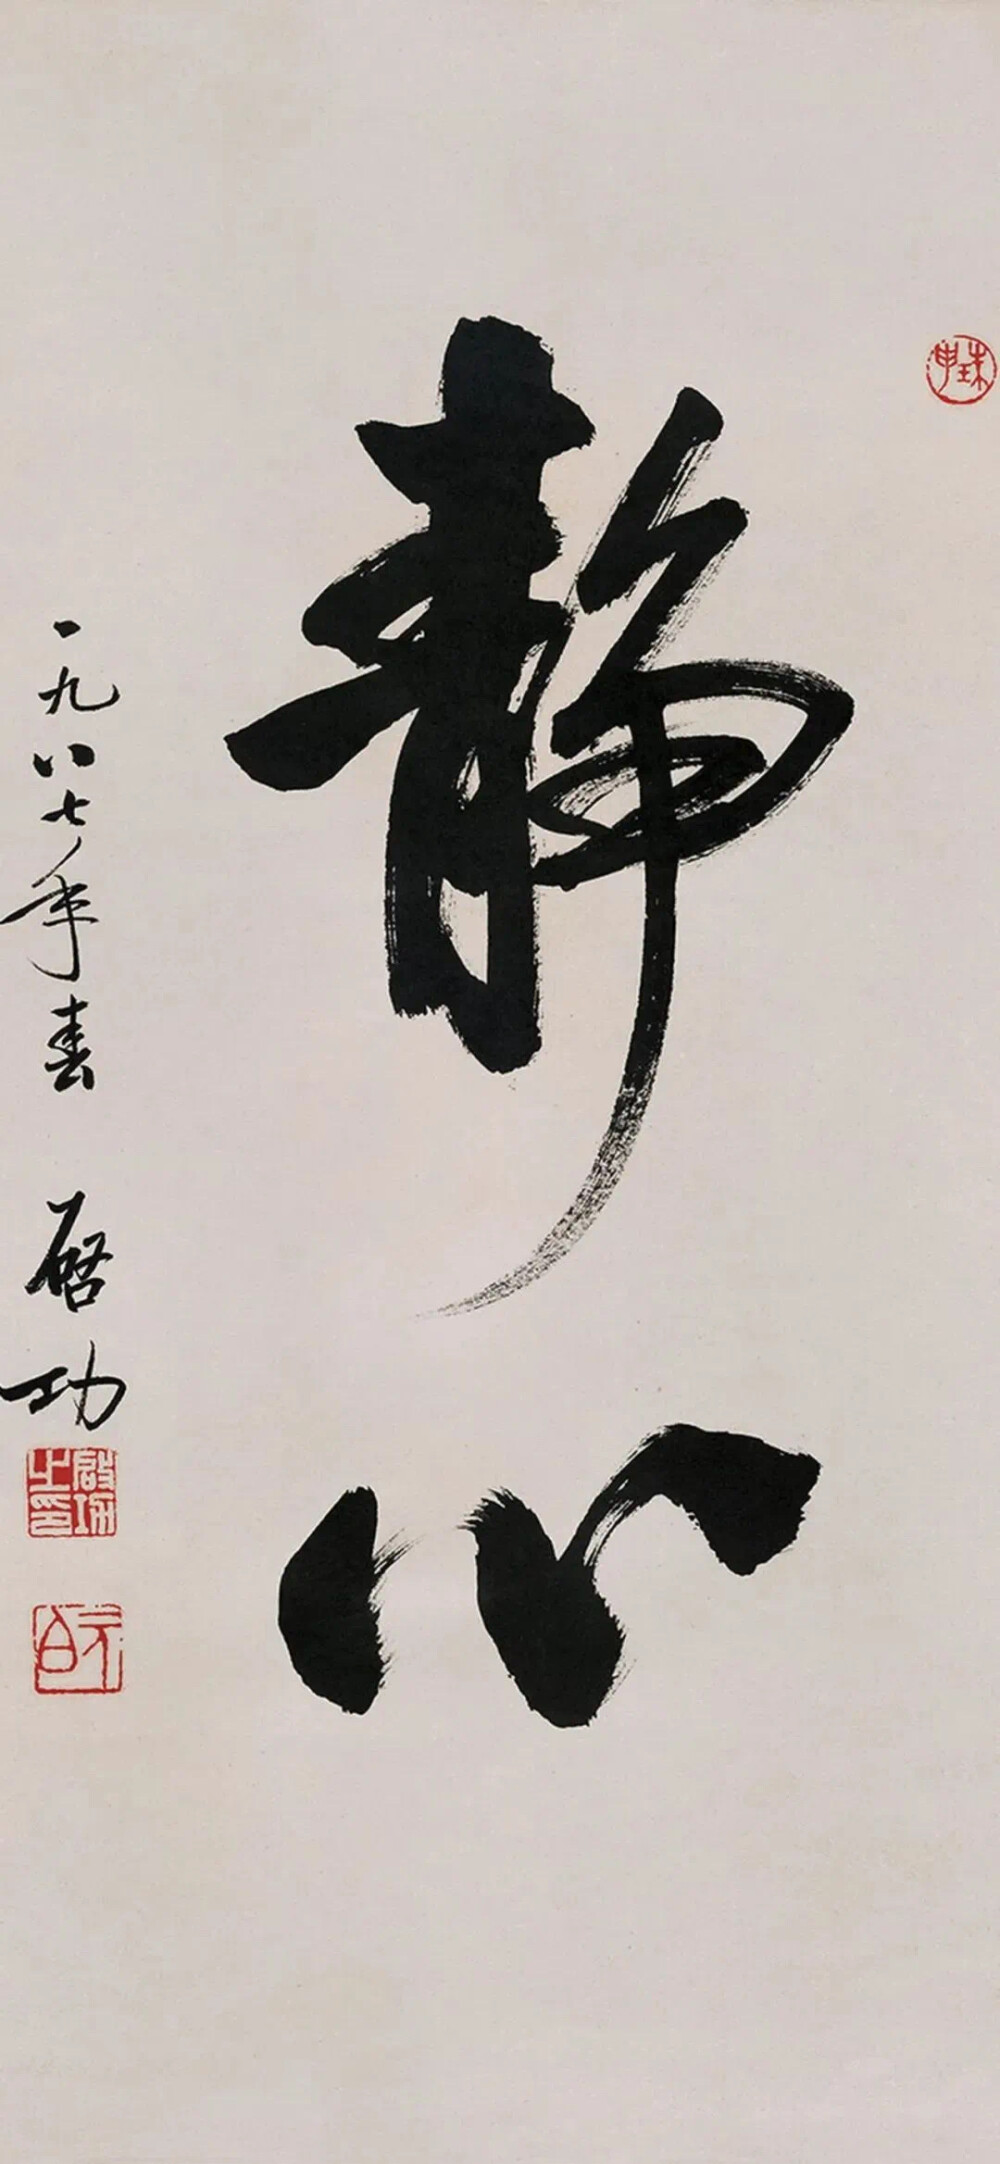 静心
一九八七年春 启功
启功之印
元白